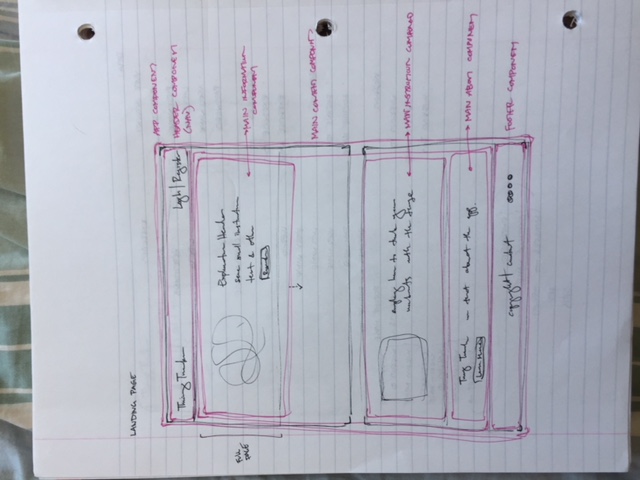 LANDING PAGE
APP COMPONENT
Login | Register
HEADER COMPONENT
(NAV)
FULL
PAGE
Explanation Header
some small instruction
text & other
MAIN INFORMATION
COMPONENT
MAIN CONTENT COMPONENT
how to your
with the
MAIN INSTRUCTION COMPONENT
text about the app.
Learn More
MAIN ABOUT COMPONENT
copyright / contact
FOOTER COMPONENT